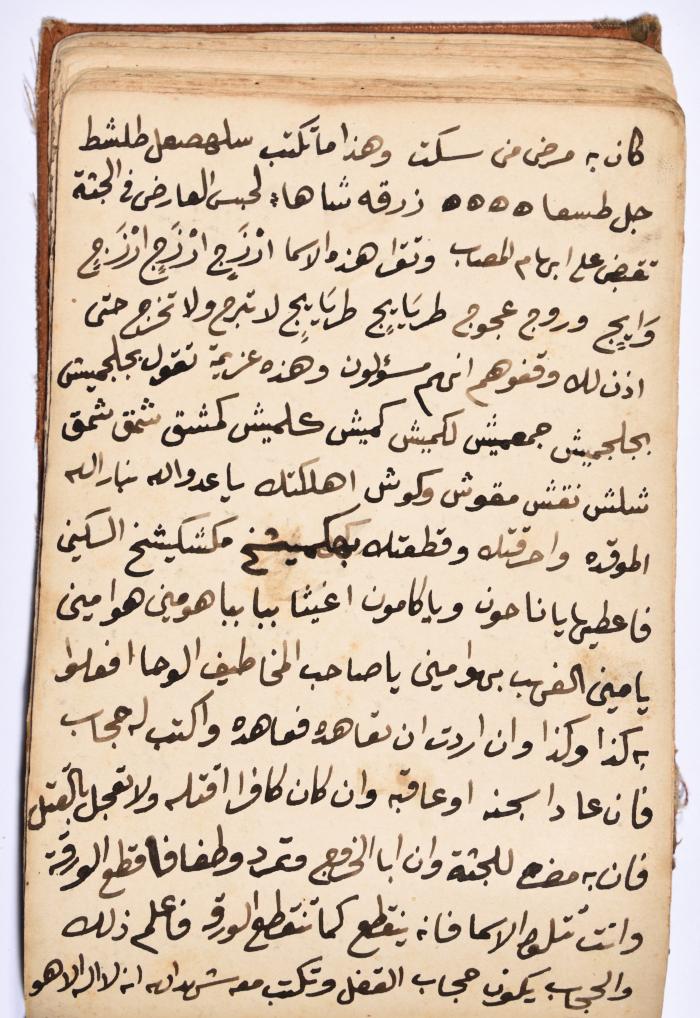 كان به مرض من سكت وهذا ما تكتب سلهصعل طلشط
جل طسعا ٥٥٥٥ زرقه شاها لحبس العارض في الجثة
تقبض على ابهام المصاب وتقرا هذه الاسما ازْرَجٍ ازْرَجٍ ازْرَجٍ
وَايِجٍ وروج عجوج طريَايِجٍ طريَايِجٍ لا تبرح ولا تخرج حتى
اذن لك وقفوهم انهم مسؤلون وهذه عزيمة تقول بجلجميش
بجلجميش جمعميش لكميش كميش كلميش كمشق شمق شمق
شلش نقش مقوش وكوش اهلكتك يا عدوالله بنار الله
الموقده واحرقتك وقطعتك مكشكيشخ السكيني
فاعطيها يا ناحون ويا كامون اغيثا ببا ببا هوميني هواميني
ياميني بهواميني يا صاحب المخاطيف الوحا افعلوا
به كذا وكذا وان اردت ان تعاهده فعاهده واكتب له حجاب
فان عاد اسجنه او عاقبه وان كان كافرا اقتله ولا تعجل بالقتل
فان به مضره للجثة وان ابا الخروج وتمرد وطغا فاقطع الورقة
وانت تتلوا الاسما فانه ينقطع كما تنقطع الورقه فاعلم ذلك
والحجاب يكون حجاب القفل وتكتب معه شهد الله انه لا اله الا هو